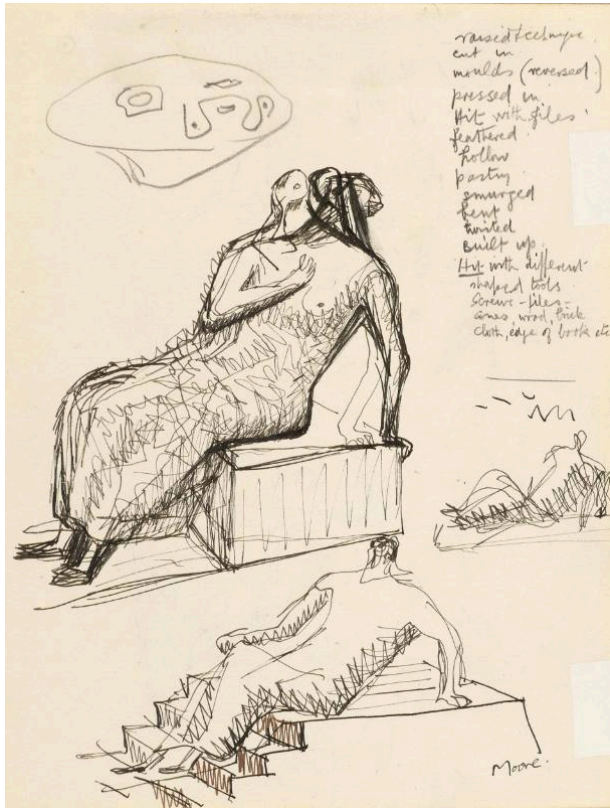 raised technique.
cut in
moulds (reversed)
pressed in.
Hit with files.
feathered.
hollow
pastry.
smurged
bent
twisted
Built up.
Hit with different
shaped tools
Screws - files -
wood, brick
cloth, edge of book etc
Moore.